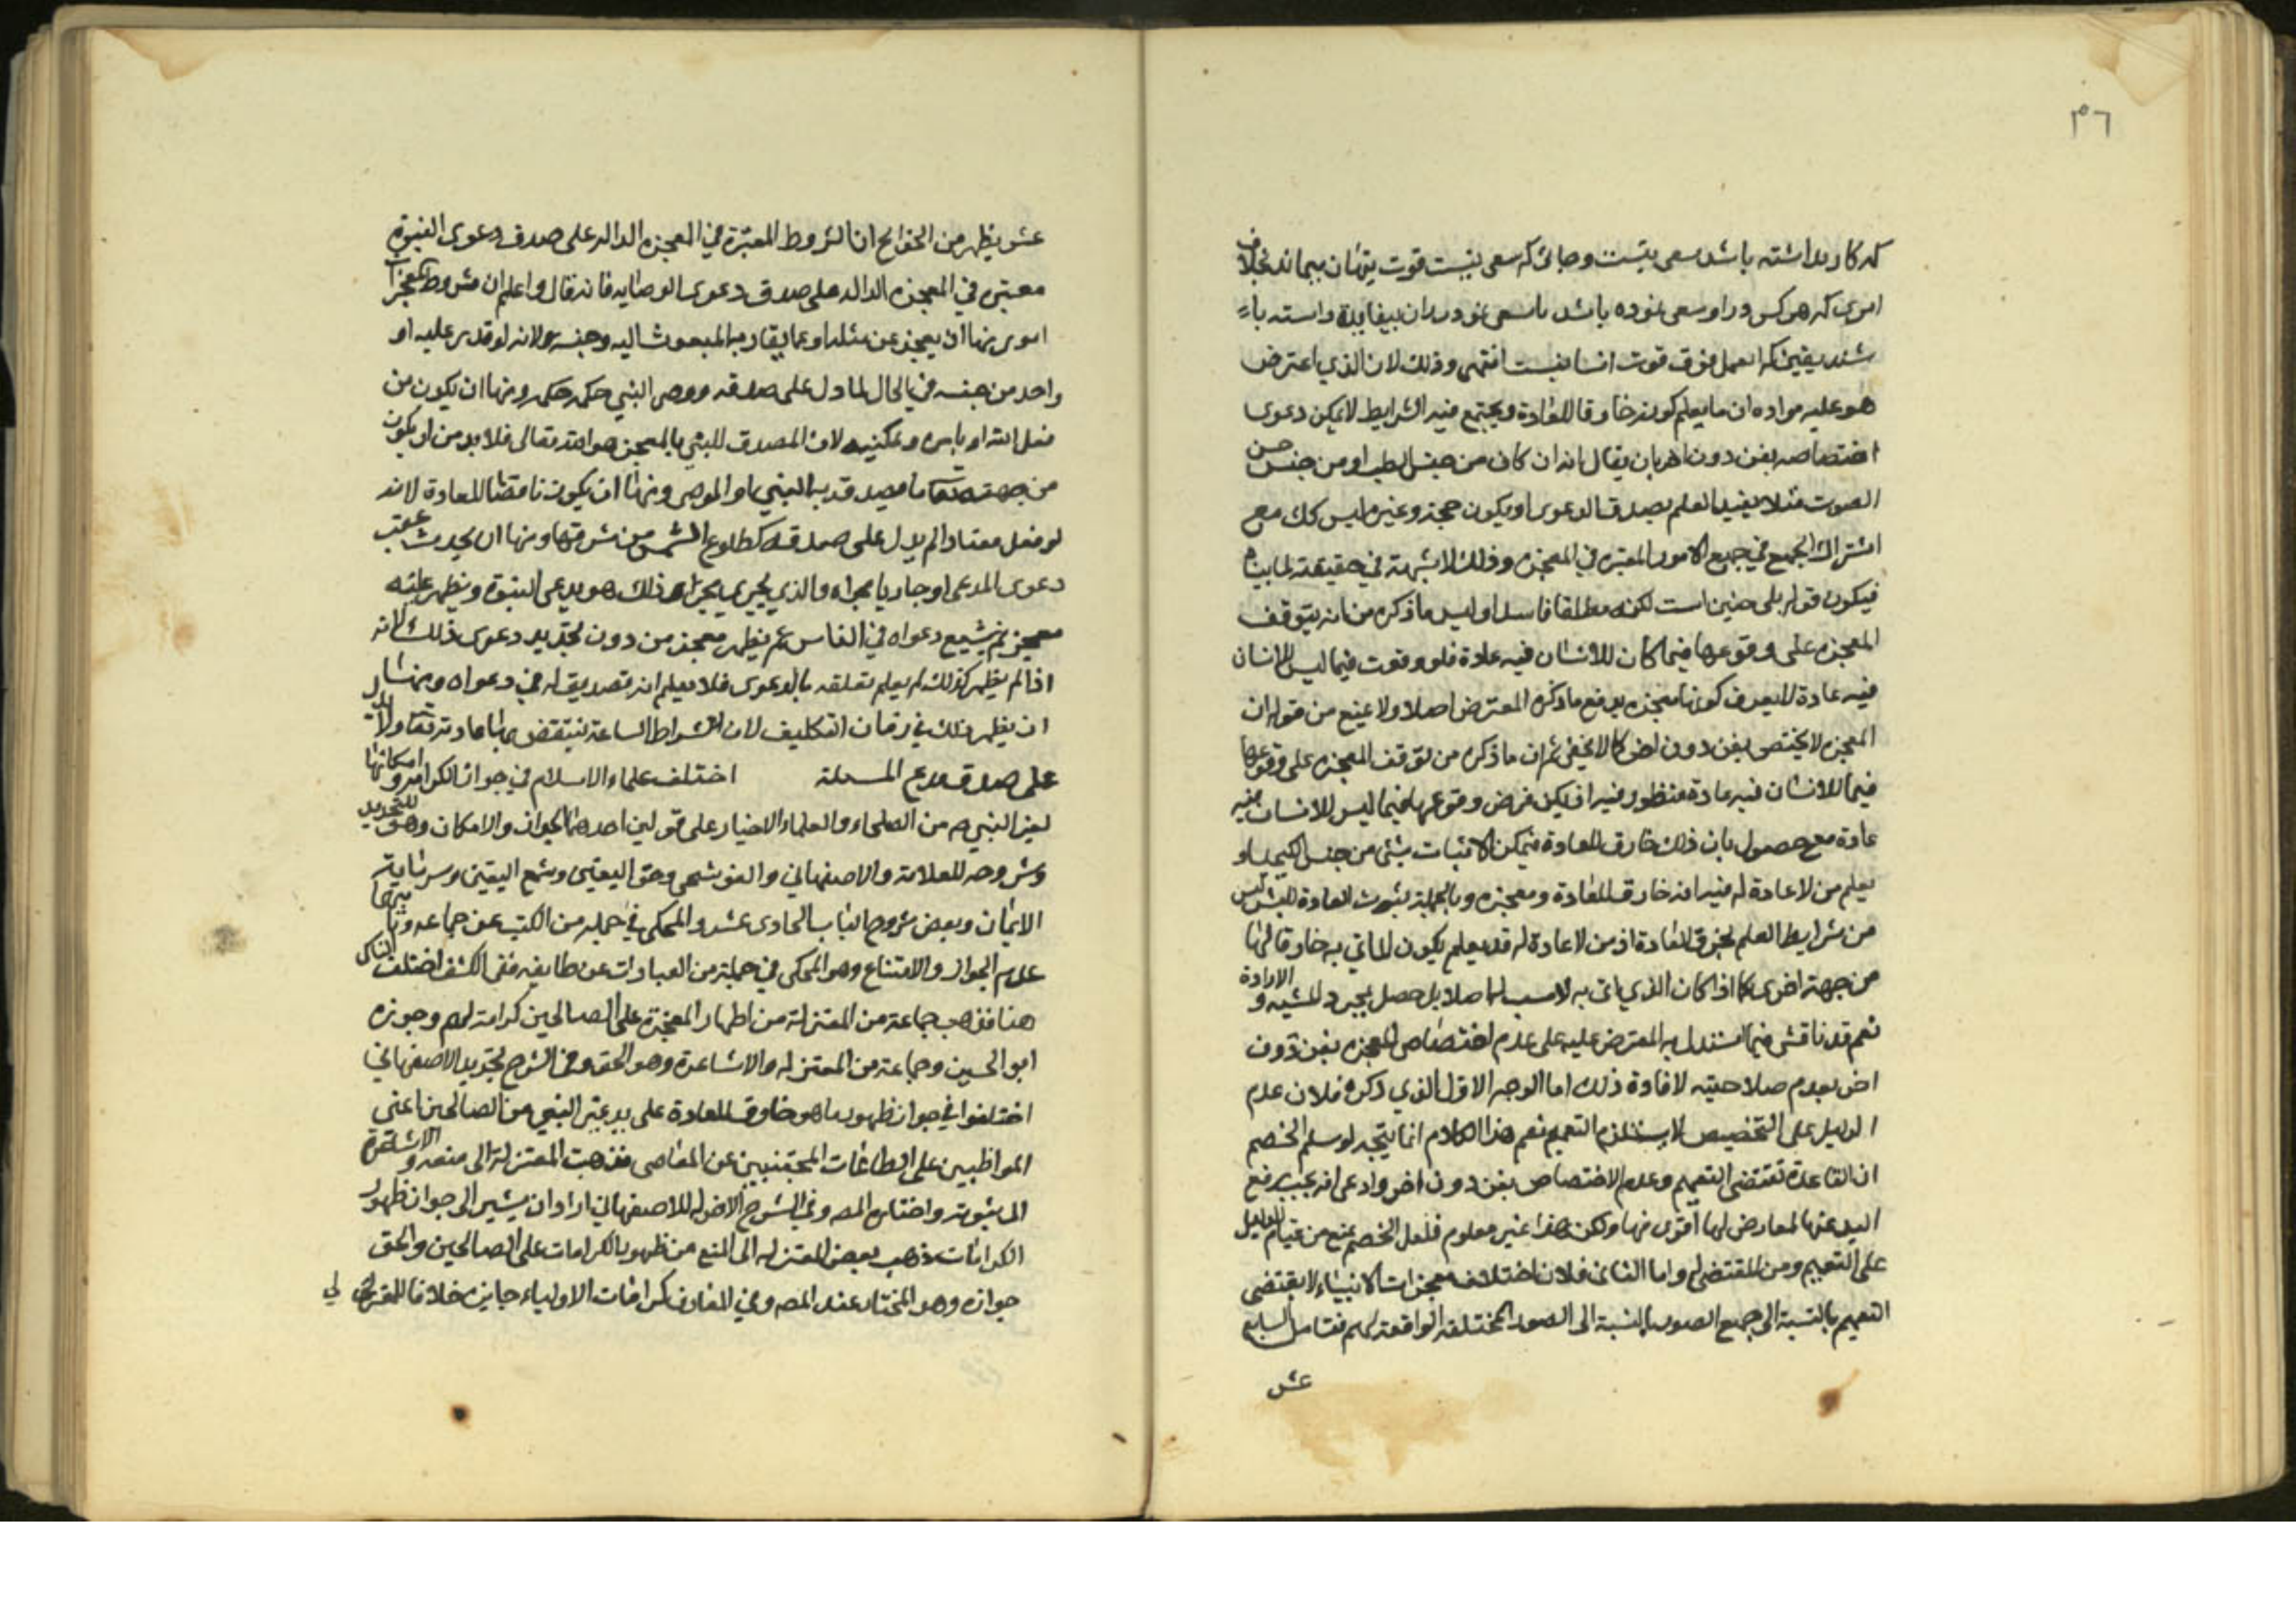 ٣٦
كه كار بداشته باشد سعى نيست و جائى كه سعى نيست قوت ينهان بيماند بخلاف
امرى كه هركس در او سعى نموده باشد با سعى خود را بيفايده دانسته با
شند يقين كه اعمل فوق قوت انسا نيست انتهى وذلك لان الذي اعترض
هو عليه مراده ان ما يعلم كونه خارقا للعادة ويجتمع فيه الشرايط لا يمكن دعوى
اختصاصه بفن دون اخر بان يقال انه ان كان من جنس الطب او من جنس حسن
الصوت مثلا يفيد العلم بصدق الدعوى او يكون حجة وغيره ليس كك مع
اشتراك الجميع في جميع الامور المعتبرة في المعجزه وذلك لا شبهة في حقيقته لما بيناه
فيكون قوله بلى چنين است لكنه مطلقا فاسدا وليس ما ذكره من انه يتوقف
المعجزه على وقوعها فيما كان للانسان فيه عادة فلو وقعت فيما ليس للانسان
فيه عادة لا يعرف كونها معجزه يدفع ما ذكره المعترض اصلا ولا يمنع من قوله ان
المعجزه لا يختص بفن دون اخر كما لا يخفى ثم ان ما ذكره من توقف المعجزه على وقوعها
فيما للانسان فيه عادة منظور فيه اذ يمكن فرض وقوعها فيما ليس للانسان فيه
عادة مع حصول بان ذلك خارق للعادة فيمكن الاتيان بشئ من جنس الكيميا و
يعلم من لا عادة له فيه انه خارق للعادة ومعجزه وبالجملة ثبوت العادة للبشر ليس
من شرايط العلم بخرق العادة اذ من لا عادة له قد يعلم بكون الماتي به خارقا لها
من جهة اخرى كما اذا كان الذي اتى به لا سبب له اصلا بل حصل بمجرد المشية و الارادة
نعم قد نناقش فيما استدل به المعترض عليه على عدم اختصاص المعجزه بفن دون
اخر بعدم صلاحيته لافادة ذلك اما الوجه الاول الذي ذكره فلان عدم
الدليل على التخصيص لا يستلزم التعميم نعم هذا الكلام انما يتجه لو سلم الخصم
ان القاعدة تقتضى التعميم وعدم الاختصاص بفن دون اخر وادعى انه يجب رفع
اليد عنها لمعارض لها اقوى منها ولكن هذا غير معلوم فلعل الخصم يمنع من قيام الدليل
على التعميم ومن المقتضى له واما الثانى فلان اختلاف معجزات الانبياء لا يقتضى
التعميم بالنسبة الى جميع الصور بالنسبة الى الصور المختلفه الواقعة لهم فتامل السابع
عشر
عشر يظهر من الخرائج ان الشروط المعتبرة في المعجزه الداله على صدق دعوى النبوة
معتبره في المعجزه الداله على صدق دعوى الوصايه فانه قال واعلم ان شروط المعجزات
امور منها ان يعجز عن مثله او عما يقاربه المبعوث اليه وجنسه لانه لو قدر عليه او
واحد من جنسه في الحال لما دل على صدقه ووصى النبي حكمه حكمه ومنها ان يكون من
فعل الله او بامره وتمكينه لان المصدق للنبي بالمعجز هو الله تعالى فلا بد من ان يكون
من جهته تعالى ما يصدق به النبي او الوصى ومنها ان يكون ناقضا للعادة لانه
لو فعل معتادا لم يدل على صدقه كطلوع الشمس من مشرقها ومنها ان يحدث عقيب
دعوى المدعى او جاريا مجراه والذي يجرى مجراى ذلك هو يدعى النبوة ويظهر عليه
معجز ثم يشيع دعواه في الناس ثم يظهر معجز من دون تجديد دعوى ذلك لانه
اذا لم يظهر كذلك لم يعلم تعلقه بالدعوى فلا يعلم انه تصديق له في دعواه ومنها
ان يظهر ذلك في زمان التكليف لان اشراط الساعة تنتقض بها عادته تعالى ولا يدل
على صدق مدع المسئلة اختلف علماء الاسلام في جواز الكرامه وامكانها
لغير النبي من الصلحاء والعلماء الاخيار على قولين احدهما الجواز والامكان وهو للتجريد
وشروحه للعلامة والاصفهاني والقوشجى وحق اليقين وشمع اليقين وسرمايه
الايمان وبعض شروح الباب الحادى عشر والمحكى في جمله من الكتب عن جماعه وثانيهما
عدم الجواز والامتناع وهو المحكى في جملة من العبارات عن طايفه ففى الكشف اختلف الناس
هنا فذهب جماعة من المعتزلة من اظهار المعجزة على الصالحين كرامة لهم وجوزه
ابو الحسين وجماعة من المعتزله والاشاعرة وهو الحق وفى الشرح لتجريد الاصفهاني
اختلفوا في جواز ظهور ما هو خارق للعادة على يد غير النبى من الصالحين اعنى
المواظبين على الطاعات المجتنبين عن المعاصى فذهبت المعتزلة الى منعه والاشعرة
الى ثبوته واختاره المصـ وفي الشرح الاخر له للاصفهاني اراد ان يشير الى جواز ظهور
الكرامات ذهب بعض المعتزله الى المنع من ظهور الكرامات على الصالحين والحق
جوازه وهو المختار عند المصـ وفي المعارف كرامات الاولياء جايزه خلافا للمعتزله لى